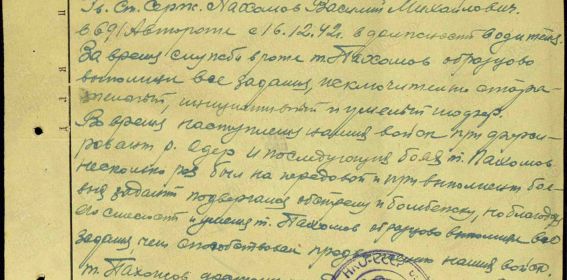 Гв. Ст. Серж. Пахомов Василий Михайлович.
в 691 Автороте с 16.12.42г. в должности водителя.
За время службы в роте т. Пахомов образцово
выполнял все задания, исключительно старательный,
инициативный и умелый шофер.
Во время наступления наших войск при форсировании
р. Одер и последующих боях т. Пахомов
несколько раз был на передовой и при выполнении боевых
заданий подвергался обстрелу и бомбежке, но благодаря
его смелости и умения т. Пахомов образцово выполнил все
задания, чем способствовал продвижению наших войск.
т. Пахомов
НКО-СССР